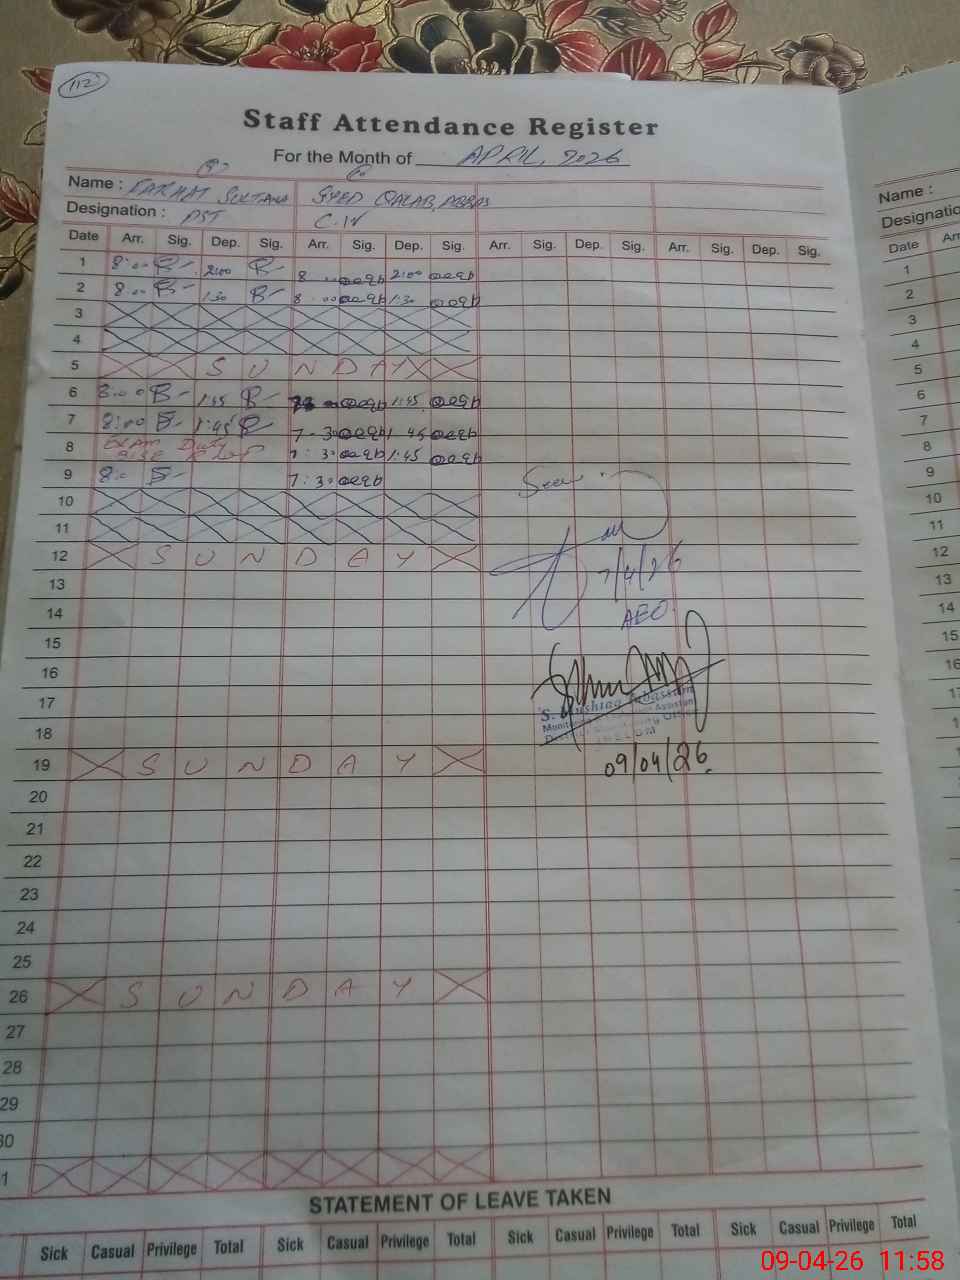 112
Staff Attendance Register
For the Month of APRIL, 2026
Name : FARHAT SULTANA SYED QALAB, ABBAS
Designation : PST C.IV
Date Arr. Sig. Dep. Sig. Arr. Sig. Dep. Sig. Arr. Sig. Dep. Sig. Arr. Sig. Dep. Sig.
1 8:00 2:00 8 2:00
2 8:00 1:30 8:00 1:30
3
4
5 SUNDAY
6 8:00 1:45 1:45
7 8:00 1:45 7:30 1:45
8 Exam Duty 7:30 1:45
9 8:0 7:30
10
11
12 SUNDAY
13
14
15
16
17
18
19 SUNDAY
20
21
22
23
24
25
26 SUNDAY
27
28
29
30
1
Seen
7/4/26
AEO.
Monitoring
09/04/26
STATEMENT OF LEAVE TAKEN
Sick Casual Privilege Total Sick Casual Privilege Total Sick Casual Privilege Total Sick Casual Privilege Total
Name :
Designatio
Date Arr
1
2
3
4
5
6
7
8
9
10
11
12
13
14
15
16
17
18
19
20
21
22
23
24
25
09-04-26 11:58